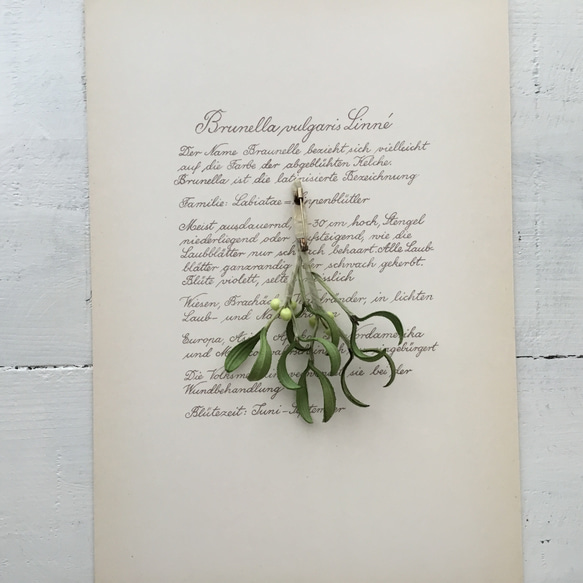 Brunella vulgaris Linné
Der Name Braunelle bezieht sich vielleicht
auf die Farbe der abgeblühten Kelche.
Brunella ist die latinisierte Bezeichnung
Familie: Labiatae = ppenblütler
Meist ausdauernd, -30 cm hoch, Stengel
niederliegend oder aufsteigend, wie die
Laubblätter nur schwach behaart. Alle Laub-
blätter ganzrandig oder schwach gekerbt.
Blüte violett, selten
Wiesen, in lichten
Laub- und
Europa, Nordamerika
und eingebürgert
Die sie bei der
Wundbehandlung
Blütezeit: Juni-September